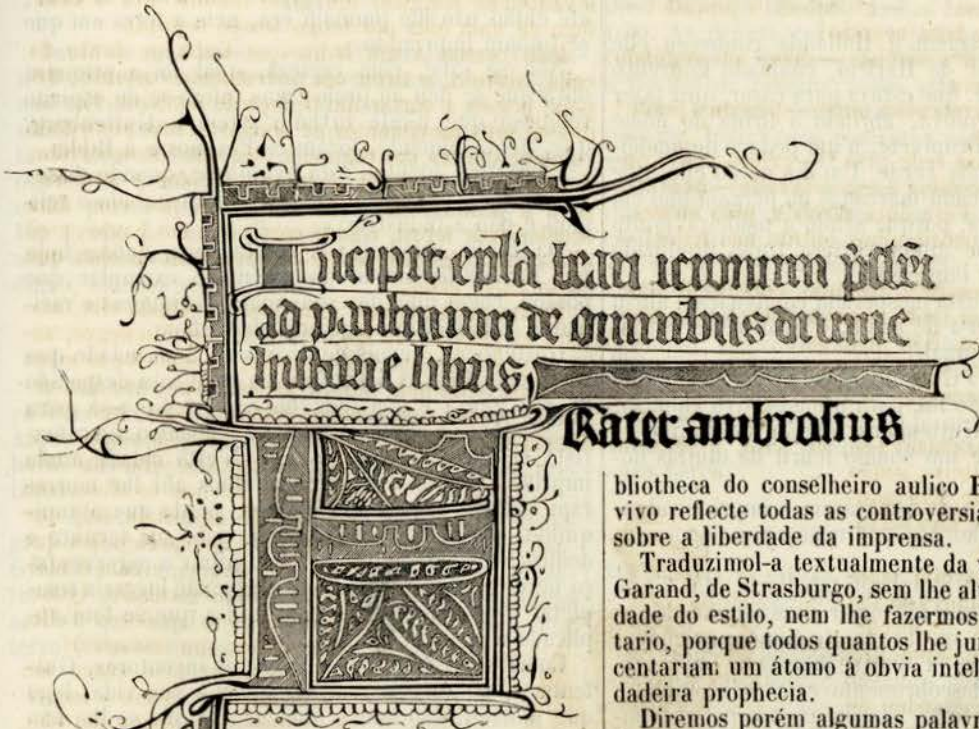 Incipit epl̃a beati ieronimi p̃sbr̃i
ad paulinum de omnibus diuine
historie libris
Rater ambrosius
bliotheca do conselheiro aulico
vivo reflecte todas as controversia
sobre a liberdade da imprensa.
Traduzimol-a textualmente da
Garand, de Strasburgo, sem lhe al
dade do estilo, nem lhe fazermos
tario, porque todos quantos lhe ju
centariam um átomo á obvia intel
dadeira prophecia.
Diremos porém algumas palavr